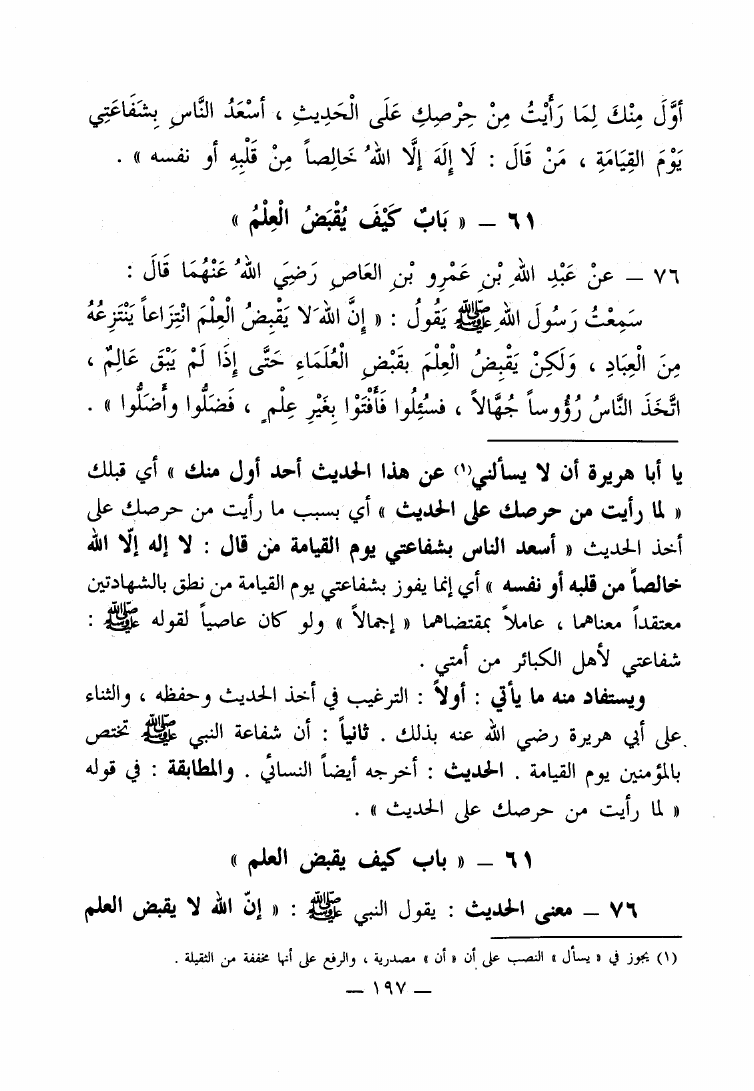 أوَّلَ مِنْكَ لِمَا رَأَيْتُ مِنْ حِرْصِكِ عَلَى الْحَدِيثِ ، أسْعَدُ النَّاسِ بِشَفَاعَتِي
يَوْمَ القِيَامَةِ ، مَنْ قَالَ : لَا إِلَهَ إلَّا اللهُ خَالِصاً مِنْ قَلْبِهِ أو نفسه » .
٦١ – « بَابٌ كَيْفَ يُقْبَضُ الْعِلْمُ »
٧٦ – عنْ عَبْدِ اللهِ بْنِ عَمْرِو بْنِ العَاصِ رَضِيَ اللهُ عَنْهُمَا قَالَ :
سَمِعْتُ رَسُولَ اللهِ ﷺ يَقُولُ : « إِنَّ اللهَ لا يَقْبِضُ الْعِلْمَ انْتِزَاعاً يَنْتَزِعهُ
مِنَ الْعِبَادِ ، وَلَكِنْ يَقْبِضُ الْعِلْمَ بِقَبْضِ الْعُلَمَاءِ حَتَّى إِذَا لَمْ يَبْقَ عَالِمٌ ،
اتَّخَذَ النَّاسُ رُؤُوساً جُهَّالاً ، فسُئِلُوا فَأَفْتَوْا بِغَيْرِ عِلْمٍ ، فَضَلُّوا وأَضَلُّوا » .
يا أبا هريرة أن لا يسألني(١) عن هذا الحديث أحد أول منك » أي قبلك
« لما رأيت من حرصك على الحديث » أي بسبب ما رأيت من حرصك على
أخذ الحديث « أسعد الناس بشفاعتي يوم القيامة من قال : لا إله إلّا الله
خالصاً من قلبه أو نفسه » أي إنما يفوز بشفاعتي يوم القيامة من نطق بالشهادتين
معتقداً معناهما ، عاملاً بمقتضاهما « إجمالاً » ولو كان عاصياً لقوله ﷺ :
شفاعتي لأهل الكبائر من أمتي .
ويستفاد منه ما يأتي : أولاً : الترغيب في أخذ الحديث وحفظه ، والثناء
على أبي هريرة رضي الله عنه بذلك . ثانياً : أن شفاعة النبي ﷺ تختص
بالمؤمنين يوم القيامة . الحديث : أخرجه أيضاً النسائي . والمطابقة : في قوله
« لما رأيت من حرصك على الحديث » .
٦١ – « باب كيف يقبض العلم »
٧٦ – معنى الحديث : يقول النبي ﷺ : « إنّ الله لا يقبض العلم
(١) يجوز في « يسأل » النصب على أن « أن » مصدرية ، والرفع على أنها مخففة من الثقيلة .
– ١٩٧ –